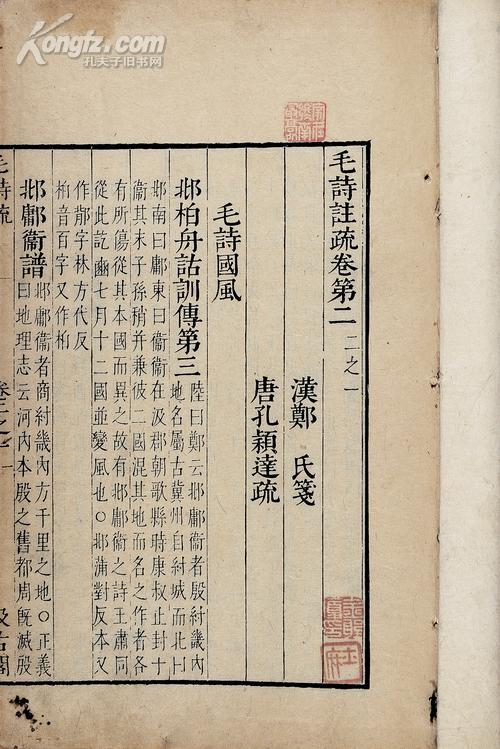 Kongfz.com
孔夫子旧书网
毛詩註疏卷第二 二之一
漢鄭 氏箋
唐孔穎達疏
毛詩國風
邶柏舟詁訓傳第三
陸曰鄭云邶鄘衛者殷紂畿內
地名屬古冀州自紂城而北曰
邶南曰鄘東曰衛衛在汲郡朝歌縣時康叔止封十
衛其末子孫稍并兼彼二國混其地而名之作者各
有所傷從其本國而異之故有邶鄘衛之詩王肅同
從此訖豳七月十二國並變風也〇邶蒲對反本又
作鄁字林方代反
柏音百字又作栢
邶鄘衛譜
邶鄘衛者商紂畿內方千里之地〇正義
曰地理志云河內本殷之舊都周既滅殷
毛詩疏
卷二之一
汲古閣